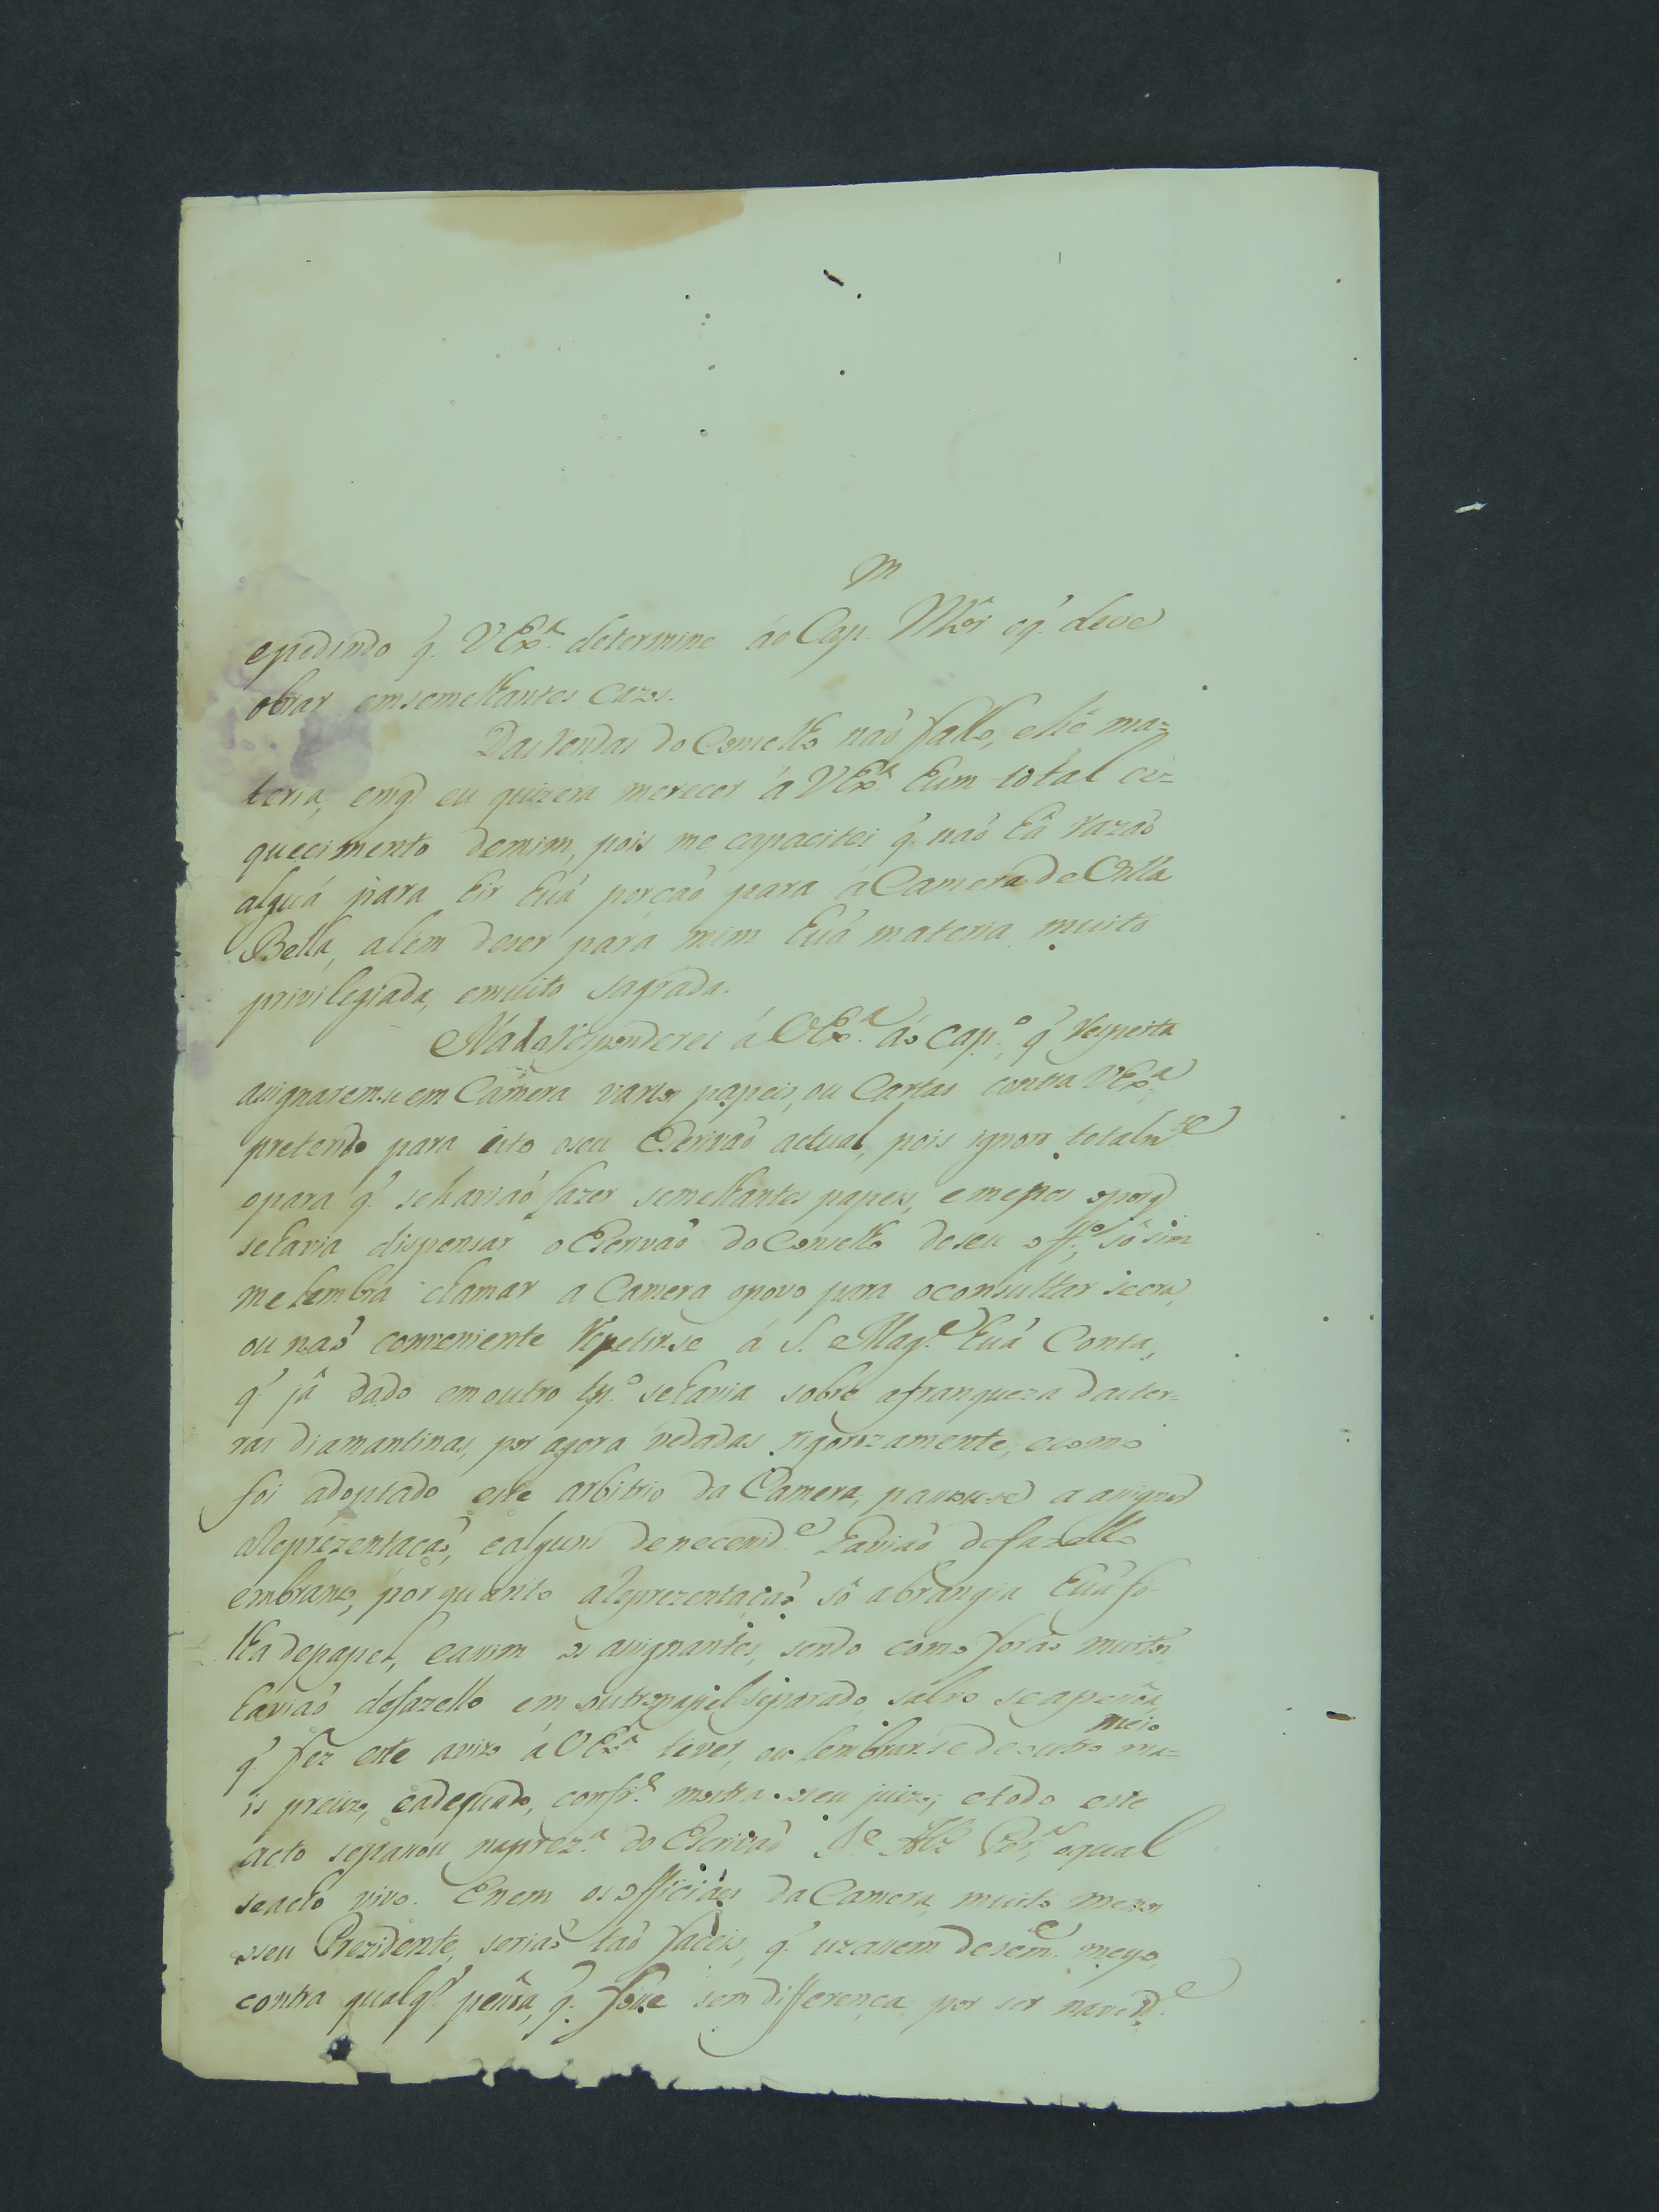 epedindo q. V Ex.ª determine áo Cap.m Môr oq. deve
obrar emsemelhantes cazos.
Das rendas do Conselho naó fallo, ehê ma=
teria, emq eu quizera merecer á V Ex.ª hum total es=
quecimento demim, pois me capacitei q. naó hâ razaó
alguá para hir huá porçaó para a Camera de Villa
Bella, alem deser para mim huá materia muito
privilegiada, emuito sagrada.
Nada responderei á V Ex.ª áo cap.º, q' respeita
assignaremse em Camera varios papeis, ou Cartas contra V Ex.ª
pretendo para isto oseu Escrivaó actual, pois ignoro totalm.te
opara q. sehaviaó fazer semelhantes papeis, emenos oporq
sehavia dispensar o Escrivaó do Conselho deseu off.º, sô sim
melembra chamar a Camera opovo para oconsultar seera,
ou naó conveniente repetirse á S. Mag.e huá Conta,
q' jâ dado emoutro tp.º sehavia sobre afranqueza daster=
ras diamantinas, por agora vedadas rigorozamente; ecomo
foi adoptado este arbitrio da Camera, passouse a assignar
aReprezentaçaó, ealguns denecessid.e haviaó defazello
embranco, porquanto aReprezentaçaó sô abrangia huá fo-
lha depapel, eassim os assignantes, sendo como foraó muitos
haviaó defazello em outropapel separado, salvo seapessôa,
q. fez este avizo á V Ex.ª tiver, ou lembrarse de outro meio ma=
is precizo, eadequado, confr.e mostra oseu juizo; etodo este
acto sepassou naprez.ª do Escrivaó J.e Alz Per.ª, oqual
seacha vivo. Enem os officiáes da Camera, muito menos
oseu Prezidente, seriaó taó faceis, q. uzassem desem.e meyo,
contra qualq.r pessôa, q. fosse sem differença, por ser